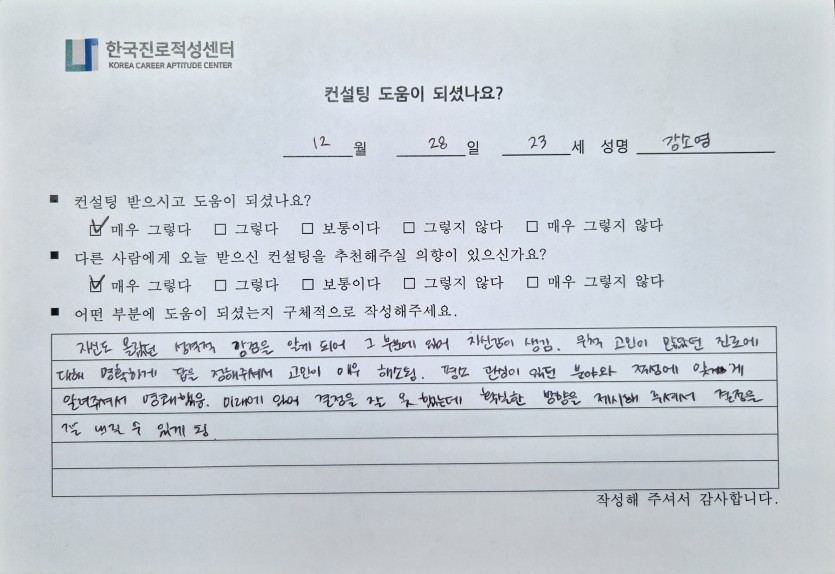 한국진로적성센터
KOREA CAREER APTITUDE CENTER
컨설팅 도움이 되셨나요?
12 월 28 일 23 세 성명 강소영
■ 컨설팅 받으시고 도움이 되셨나요?
☑ 매우 그렇다 □ 그렇다 □ 보통이다 □ 그렇지 않다 □ 매우 그렇지 않다
■ 다른 사람에게 오늘 받으신 컨설팅을 추천해주실 의향이 있으신가요?
☑ 매우 그렇다 □ 그렇다 □ 보통이다 □ 그렇지 않다 □ 매우 그렇지 않다
■ 어떤 부분에 도움이 되었는지 구체적으로 작성해주세요.
자신도 몰랐던 성격적 강점을 알게 되어 그 부분에 있어 자신감이 생김. 무척 고민이 많았던 진로에
대해 명확하게 답을 정해주셔서 고민이 매우 해소됨. 평소 관심이 있던 분야와 적성에 맞게
알려주셔서 명쾌했음. 미래에 있어 결정을 잘 못 했는데 확실한 방향을 제시해 주셔서 결정을
잘 내릴 수 있게 됨.
작성해 주셔서 감사합니다.